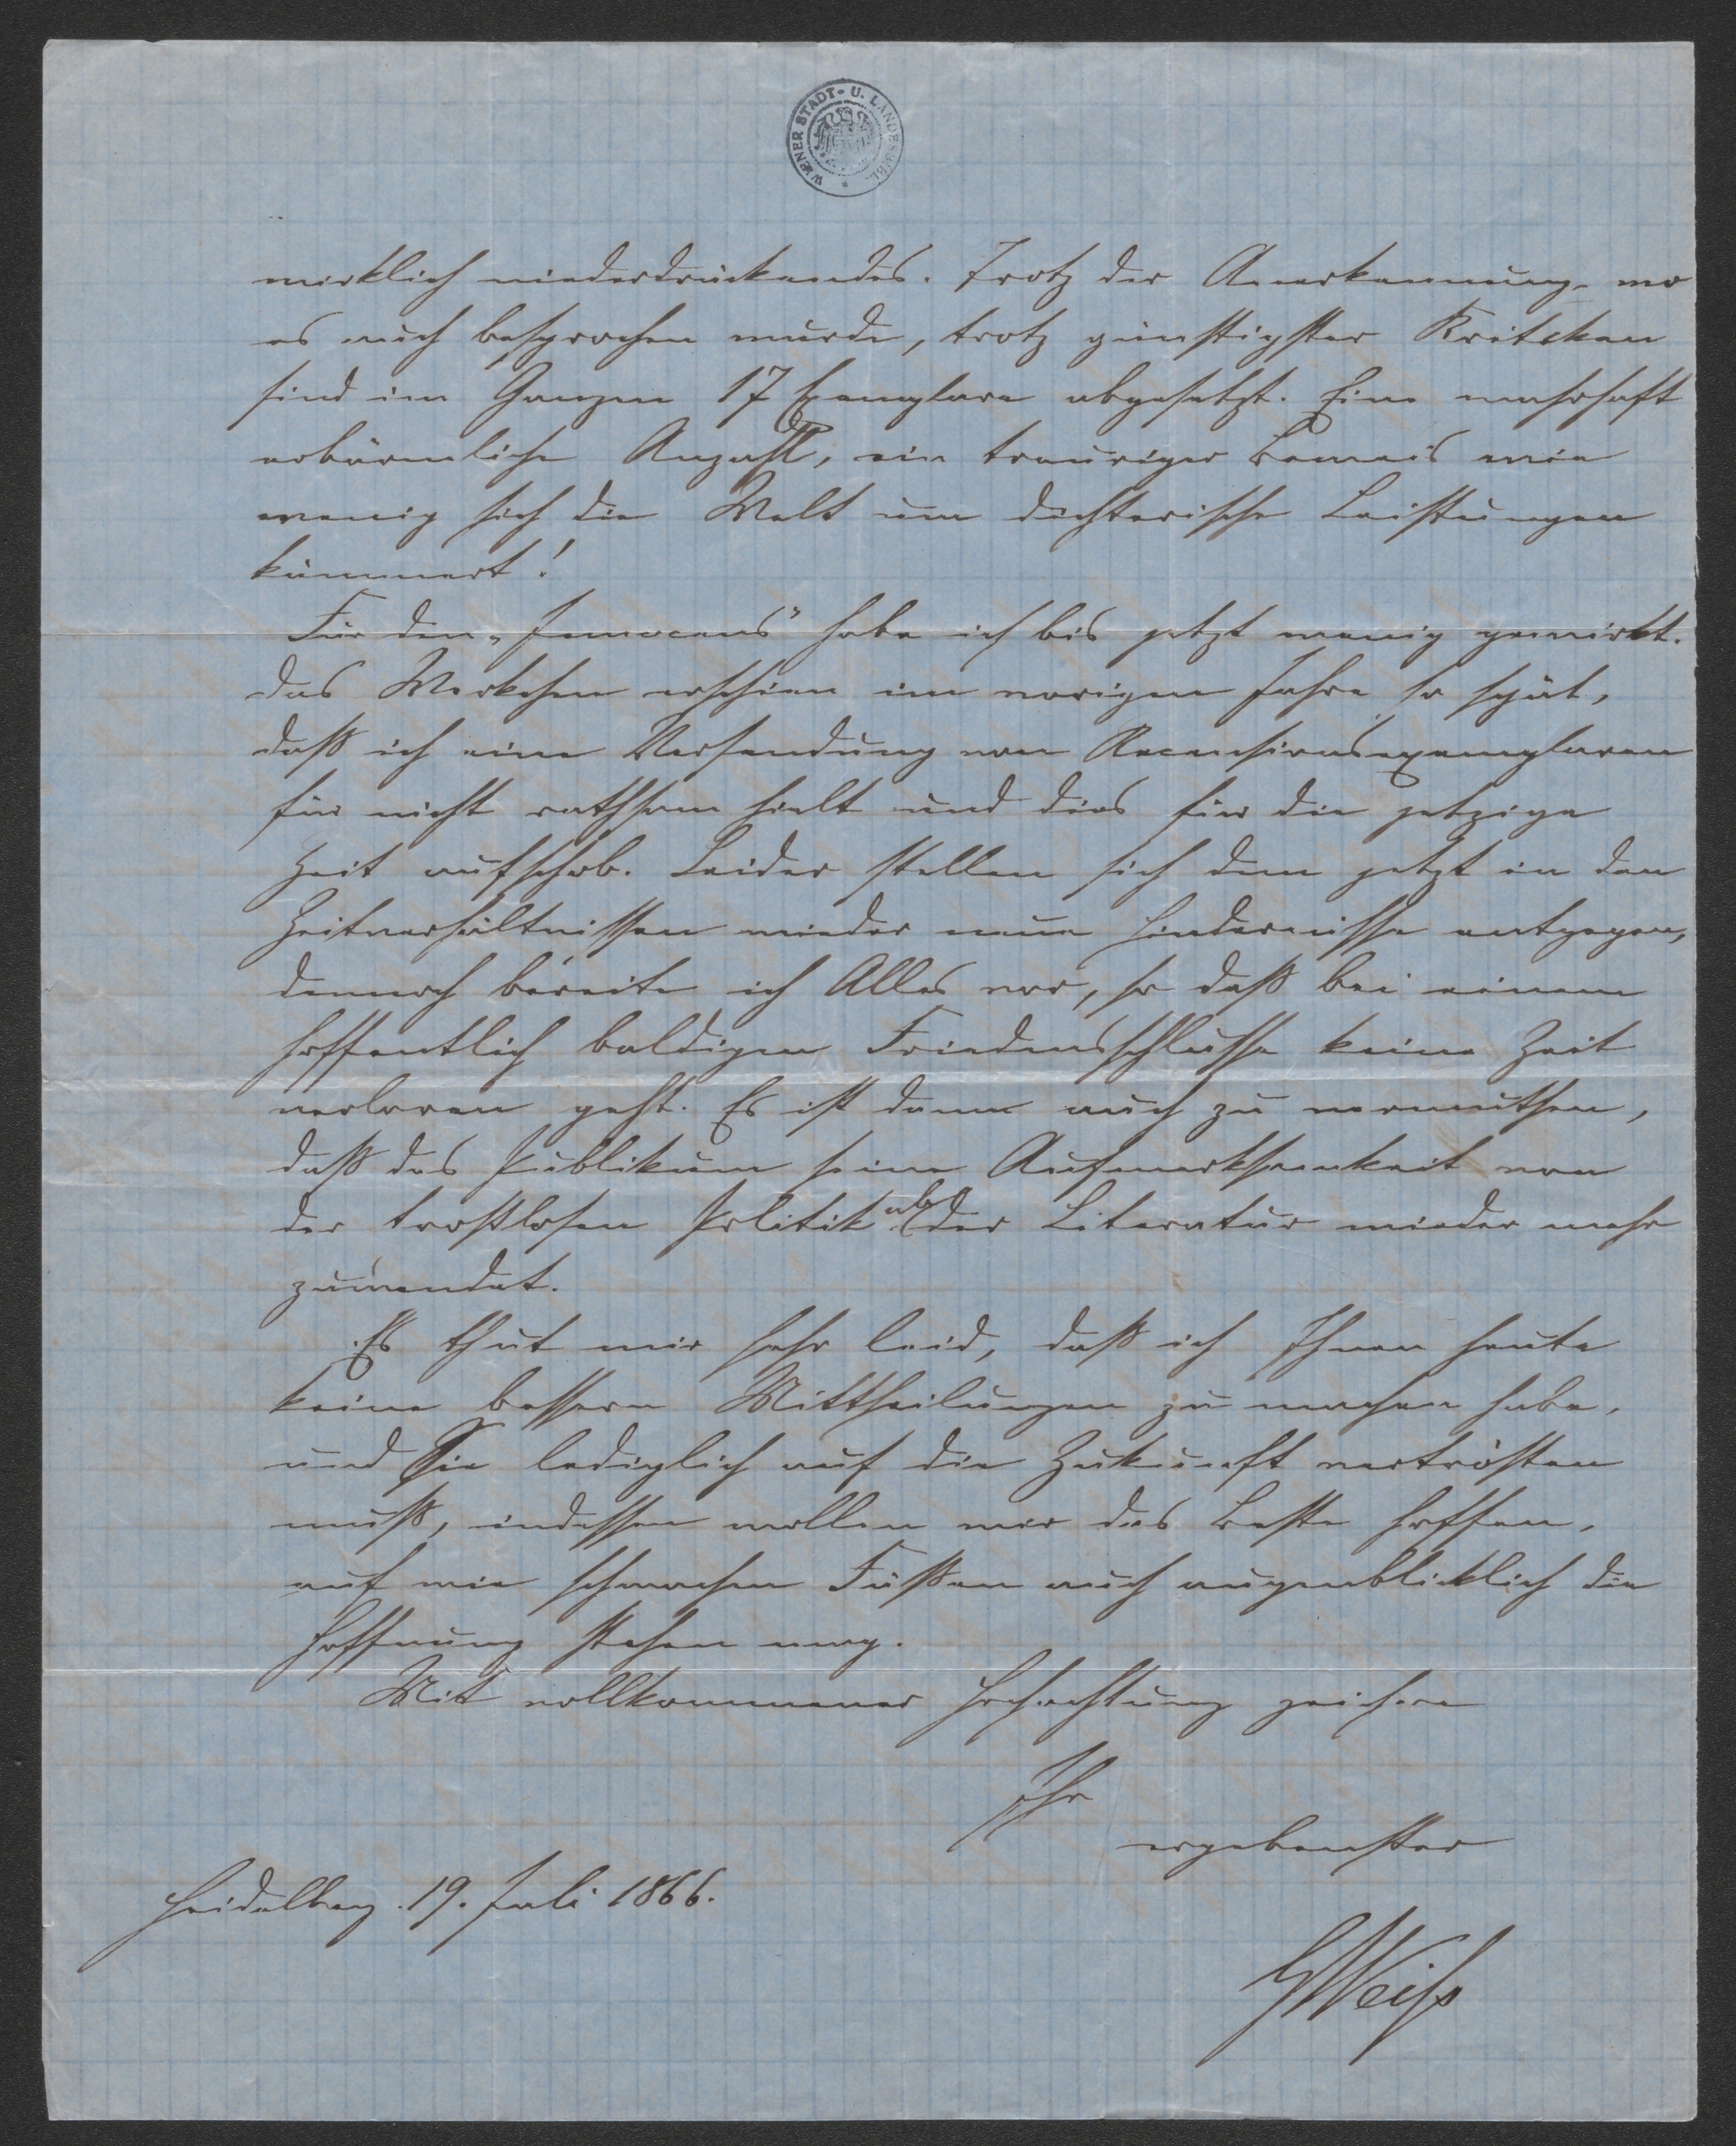 WIENER STADT- U. LANDESBIBL.
wirklich niederdrückendes. Trotz der Anerkennung, wo
es auch besprochen wurde, trotz günstigster Kritiken
sind im Ganzen 17 Exemplare abgesetzt. Eine wahrhaft
erbärmliche Anzahl, ein trauriger Beweis wie
wenig sich die Welt um dichterische Leistungen
kümmert!
Für den „Innocens" habe ich bis jetzt wenig gewirkt.
Das Werkchen erschien im vorigen Jahre so spät,
daß ich eine Versendung von Recensionsexemplaren
für nicht rathsam hielt und dies für die jetzige
Zeit aufschob. Leider stellen sich dem jetzt in den
Zeitverhältnissen wieder neue Hindernisse entgegen,
dennoch bereite ich Alles vor, so daß bei einem
hoffentlich baldigen Friedensschlusse keine Zeit
verloren geht. Es ist dann auch zu vermuthen,
daß das Publikum seine Aufmerksamkeit von
der trostlosen Politik ab der Literatur wieder mehr
zuwendet.
Es thut mir sehr leid, daß ich Ihnen heute
keine bessern Mittheilungen zu machen habe,
und Sie lediglich auf die Zukunft vertrösten
muß, indessen wollen wir das Beste hoffen,
auf wie schwachen Füßen auch augenblicklich die
Hoffnung stehen mag.
Mit vollkommener Hochachtung zeichne
Ihr
ergebenster
Heidelberg. 19. Juli 1866.
GWeiß